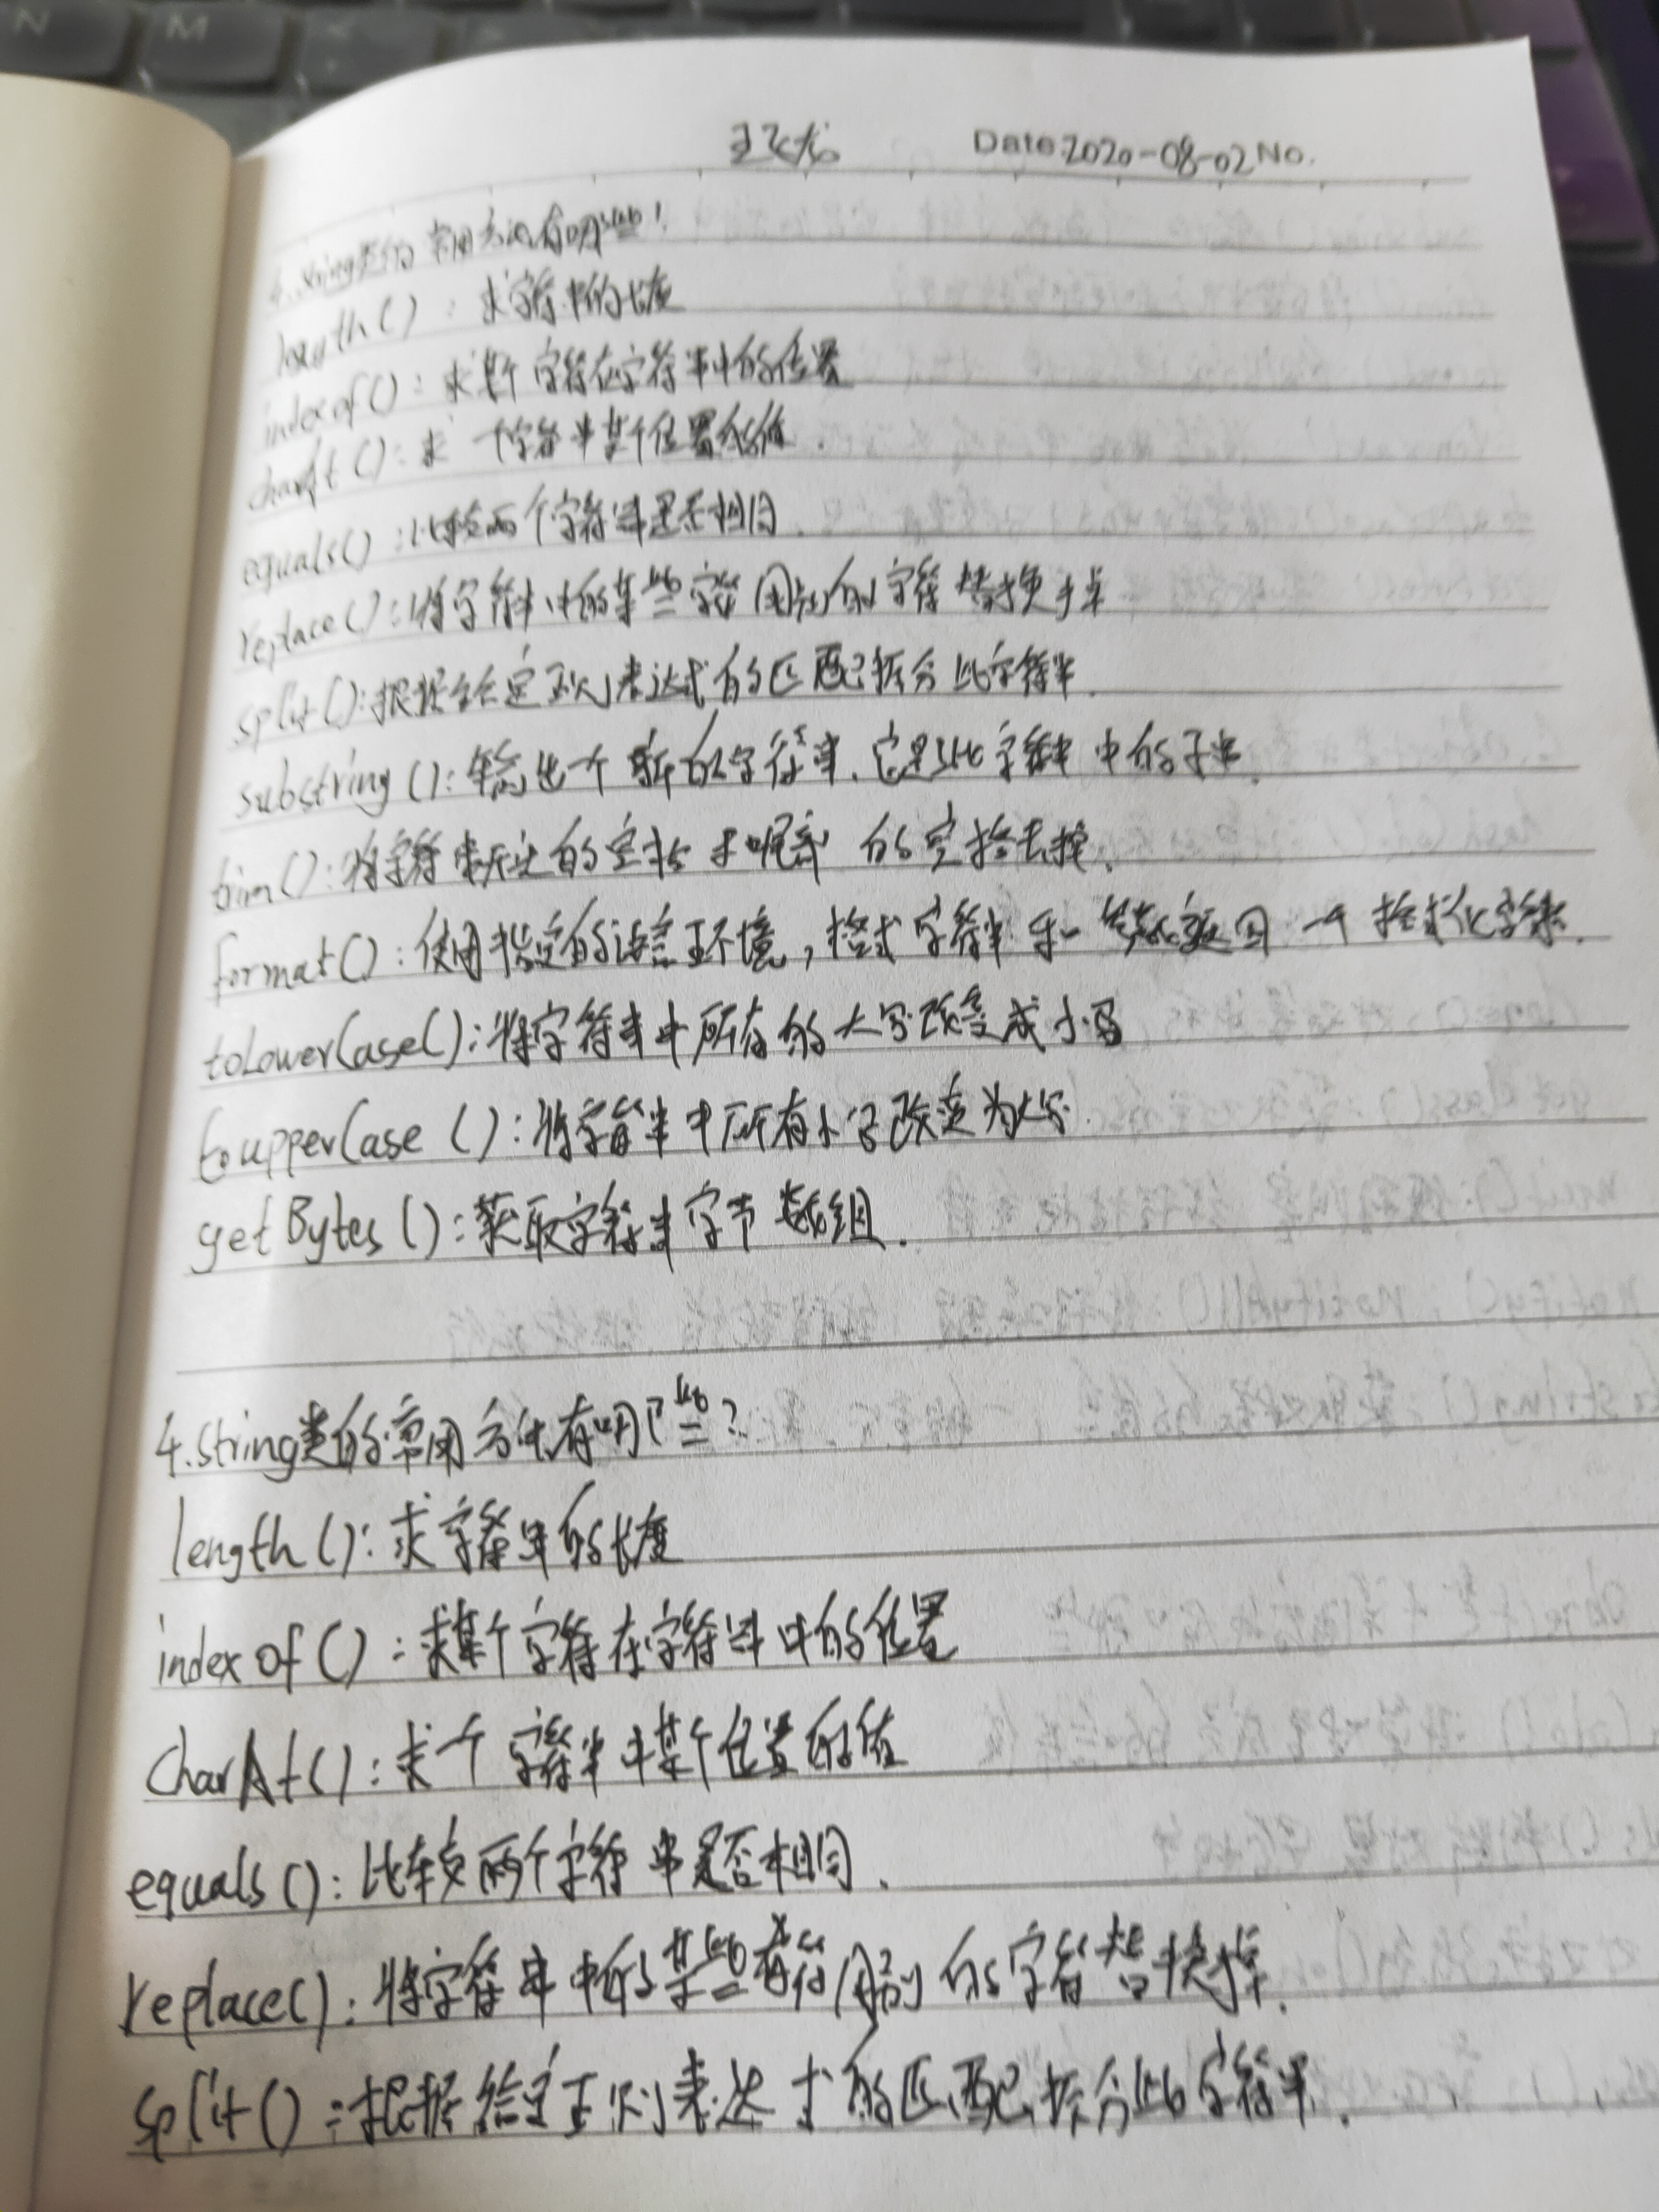 Date 2020-08-02 No.
4.String类的常用方法有哪些?
length():求字符串的长度
indexof():求某个字符在字符串中的位置
charAt():求一个字符串某个位置的值.
equals():比较两个字符串是否相同.
replace():将字符串中的某些字符用别的字符替换掉
split():根据给定正则表达式的匹配拆分此字符串.
substring():输出一个新的字符串.它是此字符串中的子串.
trim():将字符串开头的空格和尾部的空格去掉.
format():使用指定的语言环境,格式字符串和参数返回一个格式化字符串.
toLowerCase():将字符串中所有的大写改变成小写
toupperCase():将字符串中所有小写改变为大写.
getBytes():获取字符串字节数组.
4.String类的常用方法有哪些?
length():求字符串的长度
indexof():求某个字符在字符串中的位置
CharAt():求一个字符串中某个位置的值
equals():比较两个字符串是否相同.
replace():将字符串中的某些字符用别的字符替换掉.
split():根据给定正则表达式的匹配拆分此字符串.